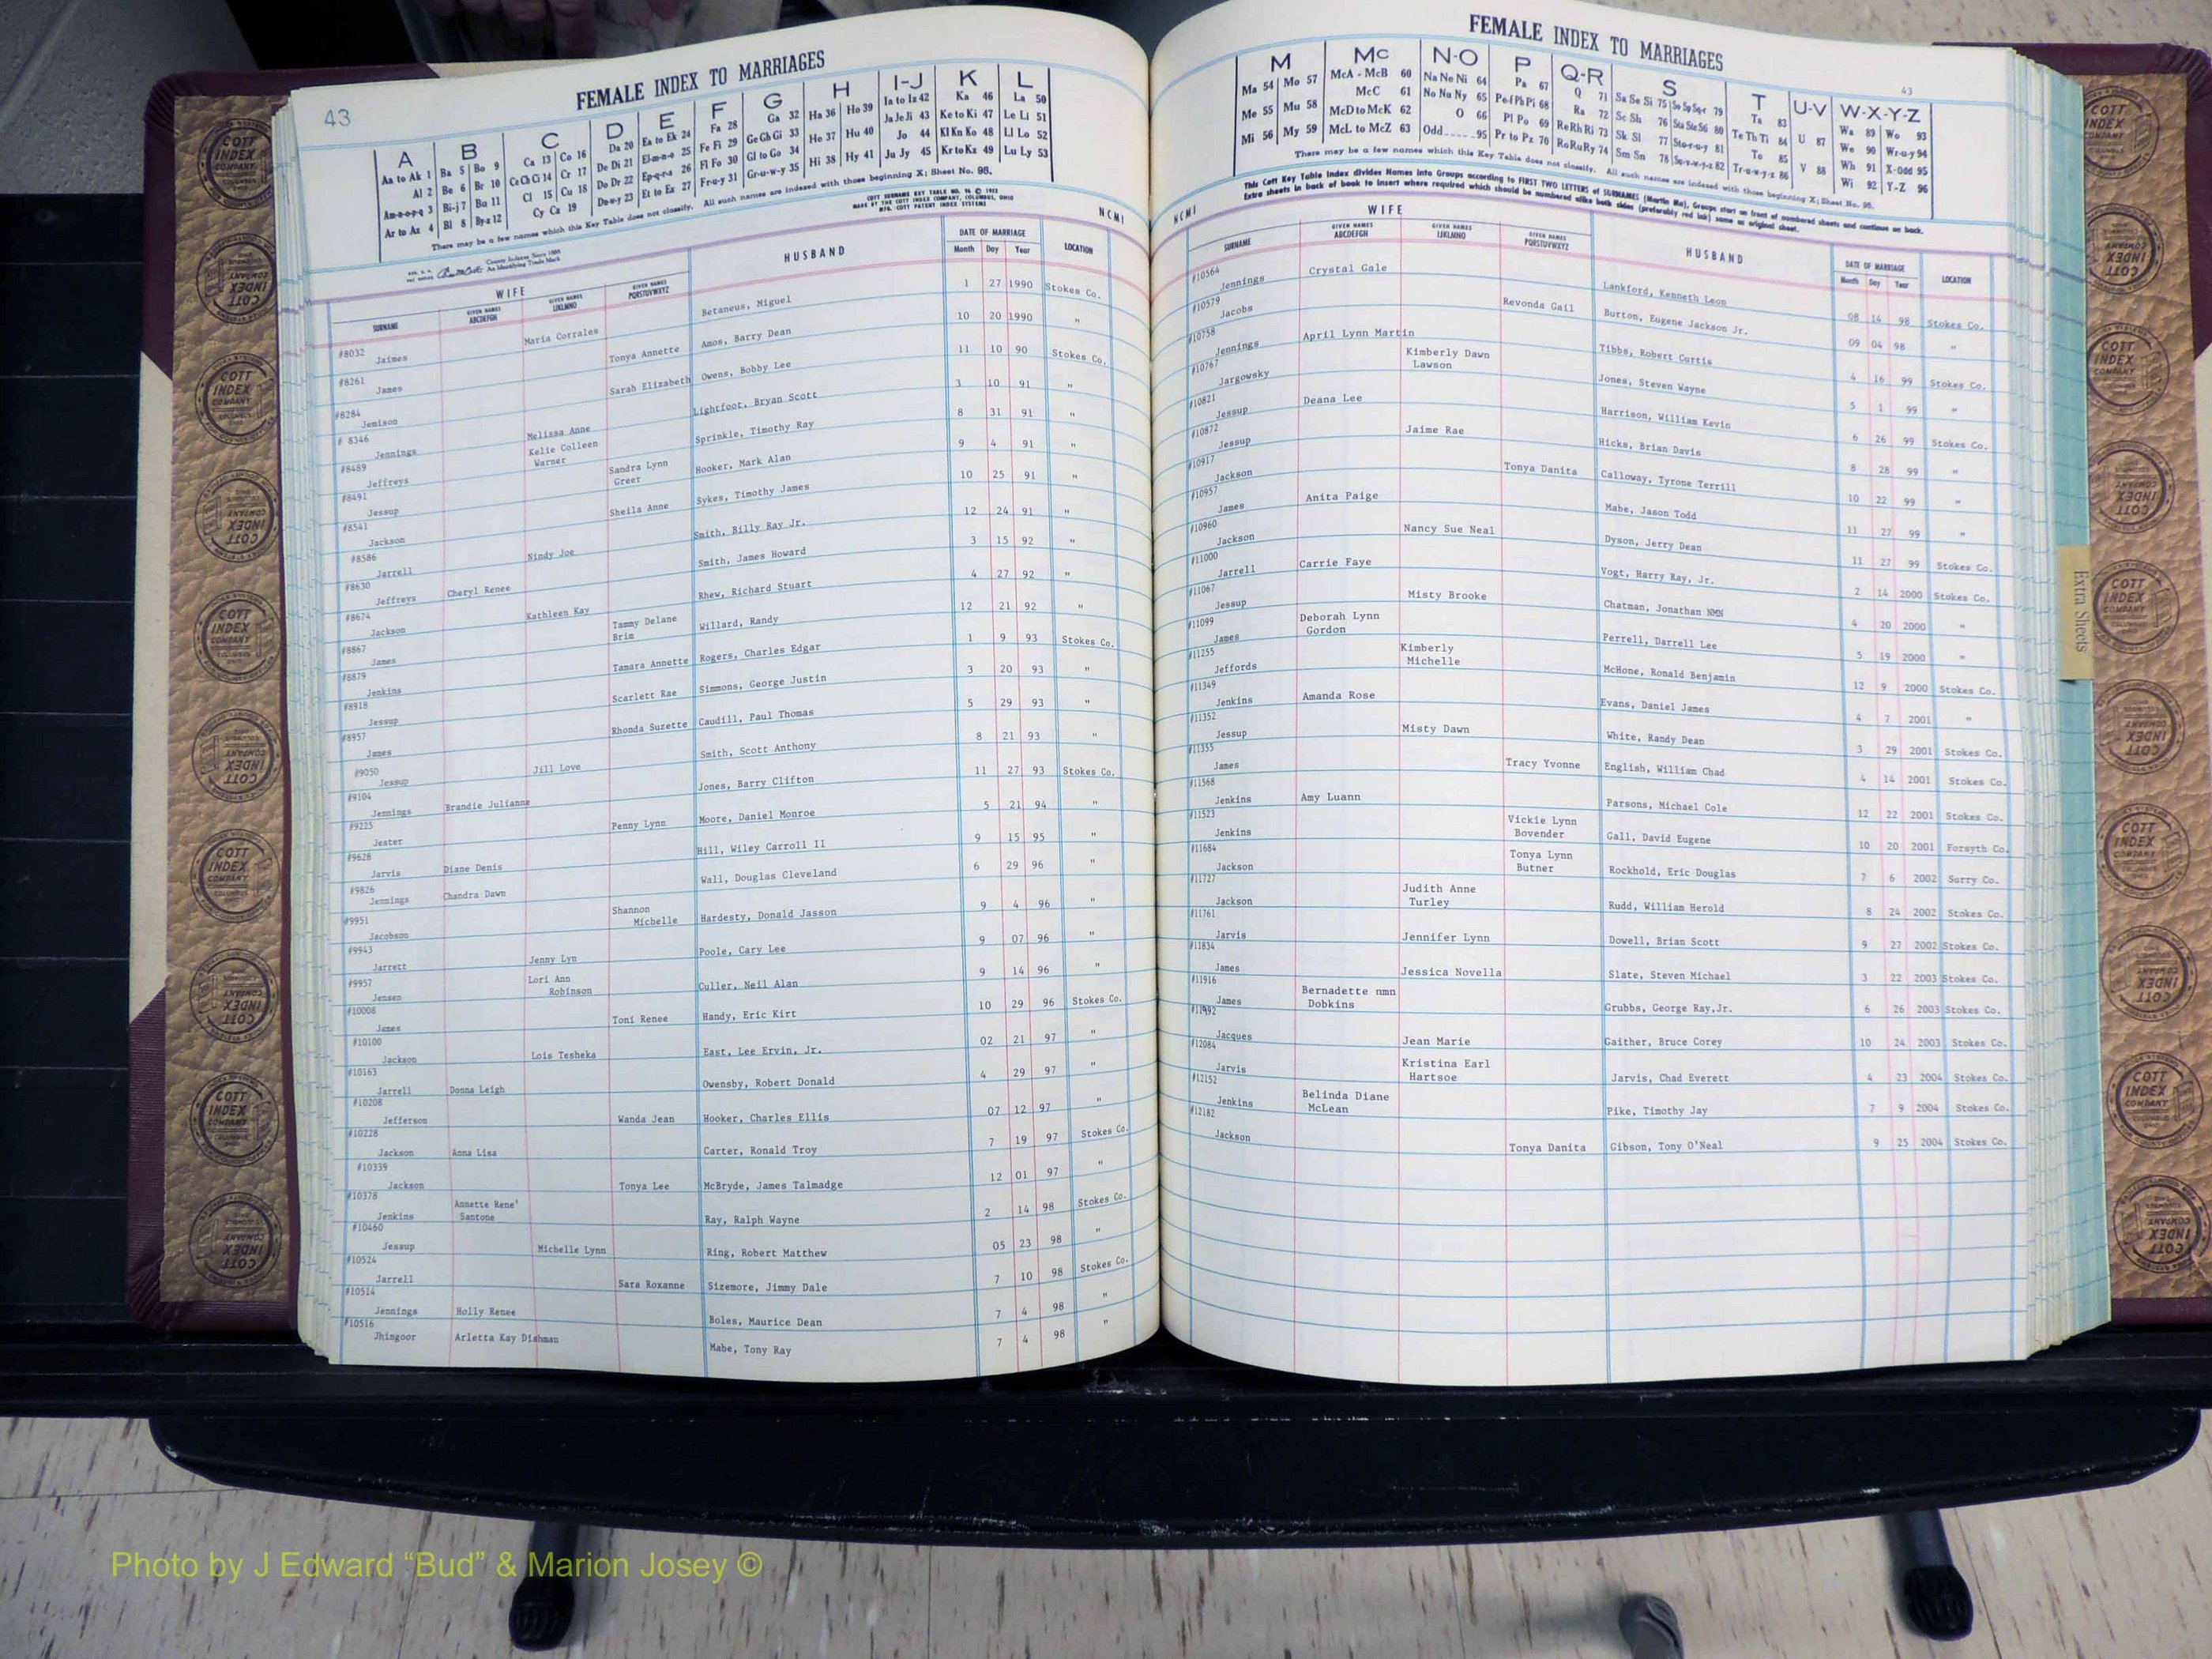 43
FEMALE INDEX TO MARRIAGES
A B C D E F G H I-J K L
Aa to Ak 1 Ba 5 Bo 9 Ca 13 Co 16 Da 20 Ea to Ek 24 Fa 28 Ga 32 Ha 36 Ho 39 Ia to Iz 42 Ka 46 La 50
Al 2 Be 6 Br 10 Ce Ch Ci 14 Cr 17 De Di 21 El-m-n-o 25 Fe Fi 29 Ge Gh Gi 33 He 37 Hu 40 Ja Je Ji 43 Ke to Ki 47 Le Li 51
Am-n-o-p-q 3 Bi-j 7 Bu 11 Cl 15 Cu 18 Do Dr 22 Ep-q-r-s 26 Fl Fo 30 Gl to Go 34 Hi 38 Hy 41 Jo 44 Kl Kn Ko 48 Ll Lo 52
Ar to Az 4 Bl 8 By-z 12 Cy Cz 19 Du-w-y 23 Et to Ez 27 Fr-u-y 31 Gr-u-w-y 35 Ju Jy 45 Kr to Kz 49 Lu Ly 53
There may be a few names which this Key Table does not classify. All such names are indexed with those beginning X; Sheet No. 98.
COTT SURNAME KEY TABLE NO. 96 © 1952
MADE BY THE COTT INDEX COMPANY, COLUMBUS, OHIO
MFG. COTT PATENT INDEX SYSTEMS
NCMI
County Indexes Since 1888
An Identifying Trade Mark
WIFE HUSBAND DATE OF MARRIAGE LOCATION
SURNAME GIVEN NAMES ABCDEFGH GIVEN NAMES IJKLMNO GIVEN NAMES PQRSTUVWXYZ Month Day Year
#8032 Jaimes Maria Corrales Betaneus, Miguel 1 27 1990 Stokes Co.
#8261 James Tonya Annette Amos, Barry Dean 10 20 1990 "
#8284 Jemison Sarah Elizabeth Owens, Bobby Lee 11 10 90 Stokes Co.
# 8346 Jennings Melissa Anne Lightfoot, Bryan Scott 3 10 91 "
#8489 Jeffreys Kelie Colleen Warner Sprinkle, Timothy Ray 8 31 91 "
#8491 Jessup Sandra Lynn Greer Hooker, Mark Alan 9 4 91 "
#8541 Jackson Sheila Anne Sykes, Timothy James 10 25 91 "
#8586 Jarrell Nindy Joe Smith, Billy Ray Jr. 12 24 91 "
#8630 Jeffreys Cheryl Renee Smith, James Howard 3 15 92 "
#8674 Jackson Kathleen Kay Rhew, Richard Stuart 4 27 92 "
#8867 James Tammy Delane Brim Willard, Randy 12 21 92 "
#8879 Jenkins Tamara Annette Rogers, Charles Edgar 1 9 93 Stokes Co.
#8918 Jessup Scarlett Rae Simmons, George Justin 3 20 93 "
#8957 James Rhonda Suzette Caudill, Paul Thomas 5 29 93 "
#9050 Jessup Jill Love Smith, Scott Anthony 8 21 93 "
#9104 Jennings Brandie Julianne Jones, Barry Clifton 11 27 93 Stokes Co.
#9225 Jester Penny Lynn Moore, Daniel Monroe 5 21 94 "
#9628 Jarvis Diane Denis Hill, Wiley Carroll II 9 15 95 "
#9826 Jennings Chandra Dawn Wall, Douglas Cleveland 6 29 96 "
#9951 Jacobson Shannon Michelle Hardesty, Donald Jasson 9 4 96 "
#9943 Jarrett Jenny Lyn Poole, Cary Lee 9 07 96 "
#9957 Jensen Lori Ann Robinson Culler, Neil Alan 9 14 96 "
#10008 James Toni Renee Handy, Eric Kirt 10 29 96 Stokes Co.
#10100 Jackson Lois Tesheka East, Lee Ervin, Jr. 02 21 97 "
#10163 Jarrell Donna Leigh Owensby, Robert Donald 4 29 97 "
#10208 Jefferson Wanda Jean Hooker, Charles Ellis 07 12 97 "
#10228 Jackson Anna Lisa Carter, Ronald Troy 7 19 97 Stokes Co.
#10339 Jackson Tonya Lee McBryde, James Talmadge 12 01 97 "
#10378 Jenkins Annette Rene' Santone Ray, Ralph Wayne 2 14 98 Stokes Co.
#10460 Jessup Michelle Lynn Ring, Robert Matthew 05 23 98 "
#10524 Jarrell Sara Roxanne Sizemore, Jimmy Dale 7 10 98 Stokes Co.
#10514 Jennings Holly Renee Boles, Maurice Dean 7 4 98 "
#10516 Jhingoor Arletta Kay Dishman Mabe, Tony Ray 7 4 98 "
FEMALE INDEX TO MARRIAGES
43
M Mc N-O P Q-R S T U-V W-X-Y-Z
Ma 54 Mo 57 McA - McB 60 Na Ne Ni 64 Pa 67 Q 71 Sa Se Si 75 So Sp Sq-r 79 Ta 83 Wa 89 Wo 93
Me 55 Mu 58 McC 61 No Nu Ny 65 Pe-f Ph Pi 68 Ra 72 Sc Sh 76 Sta Ste Sti 80 Te Th Ti 84 U 87 We 90 Wr-u-y 94
Mi 56 My 59 McD to McK 62 O 66 Pl Po 69 Re Rh Ri 73 Sk Sl 77 Sto-r-u-y 81 To 85 V 88 Wh 91 X-Odd 95
McL to McZ 63 Odd 95 Pr to Pz 70 Ro Ru Ry 74 Sm Sn 78 Su-v-w-y-z 82 Tr-u-w-y-z 86 Wi 92 Y-Z 96
There may be a few names which this Key Table does not classify. All such names are indexed with those beginning X; Sheet No. 98.
This Cott Key Table Index divides Names into Groups according to FIRST TWO LETTERS of SURNAMES (Martin Ma). Groups start on front of numbered sheets and continue on back.
Extra sheets in back of book to insert where required which should be numbered alike both sides (preferably red ink) same as original sheet.
NCMI
WIFE HUSBAND DATE OF MARRIAGE LOCATION
SURNAME GIVEN NAMES ABCDEFGH GIVEN NAMES IJKLMNO GIVEN NAMES PQRSTUVWXYZ Month Day Year
#10564 Jennings Crystal Gale Lankford, Kenneth Leon 08 14 98 Stokes Co.
#10579 Jacobs Revonda Gail Burton, Eugene Jackson Jr. 09 04 98 "
#10758 Jennings April Lynn Martin Tibbs, Robert Curtis 4 16 99 Stokes Co.
#10767 Jargowsky Kimberly Dawn Lawson Jones, Steven Wayne 5 1 99 "
#10821 Jessup Deana Lee Harrison, William Kevin 6 26 99 Stokes Co.
#10872 Jessup Jaime Rae Hicks, Brian Davis 8 28 99 "
#10917 Jackson Tonya Danita Calloway, Tyrone Terrill 10 22 99 "
#10957 James Anita Paige Mabe, Jason Todd 11 27 99 "
#10960 Jackson Nancy Sue Neal Dyson, Jerry Dean 11 27 99 Stokes Co.
#11000 Jarrell Carrie Faye Vogt, Harry Ray, Jr. 2 14 2000 Stokes Co.
#11067 Jessup Misty Brooke Chatman, Jonathan NMN 4 20 2000 "
#11099 James Deborah Lynn Gordon Perrell, Darrell Lee 5 19 2000 "
#11255 Jeffords Kimberly Michelle McHone, Ronald Benjamin 12 9 2000 Stokes Co.
#11349 Jenkins Amanda Rose Evans, Daniel James 4 7 2001 "
#11352 Jessup Misty Dawn White, Randy Dean 3 29 2001 Stokes Co.
#11355 James Tracy Yvonne English, William Chad 4 14 2001 Stokes Co.
#11568 Jenkins Amy Luann Parsons, Michael Cole 12 22 2001 Stokes Co.
#11523 Jenkins Vickie Lynn Bovender Gall, David Eugene 10 20 2001 Forsyth Co.
#11684 Jackson Tonya Lynn Butner Rockhold, Eric Douglas 7 6 2002 Surry Co.
#11727 Jackson Judith Anne Turley Rudd, William Herold 8 24 2002 Stokes Co.
#11761 Jarvis Jennifer Lynn Dowell, Brian Scott 9 27 2002 Stokes Co.
#11834 James Jessica Novella Slate, Steven Michael 3 22 2003 Stokes Co.
#11916 James Bernadette nmn Dobkins Grubbs, George Ray,Jr. 6 26 2003 Stokes Co.
#11992 Jacques Jean Marie Gaither, Bruce Corey 10 24 2003 Stokes Co.
#12084 Jarvis Kristina Earl Hartsoe Jarvis, Chad Everett 4 23 2004 Stokes Co.
#12152 Jenkins Belinda Diane McLean Pike, Timothy Jay 7 9 2004 Stokes Co.
#12182 Jackson Tonya Danita Gibson, Tony O'Neal 9 25 2004 Stokes Co.
Extra Sheets
COTT INDEX COMPANY
Photo by J Edward “Bud” & Marion Josey ©